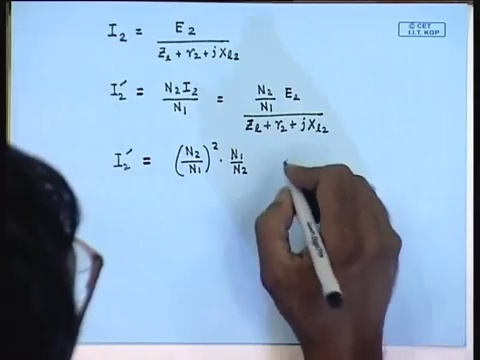 © CET
I.I.T. KGP
I₂ = E₂ / (Z_L + r₂ + j X_l2)
I₂′ = N₂I₂ / N₁ = (N₂/N₁) E₂ / (Z_L + r₂ + j X_l2)
I₂′ = (N₂/N₁)² · N₁/N₂